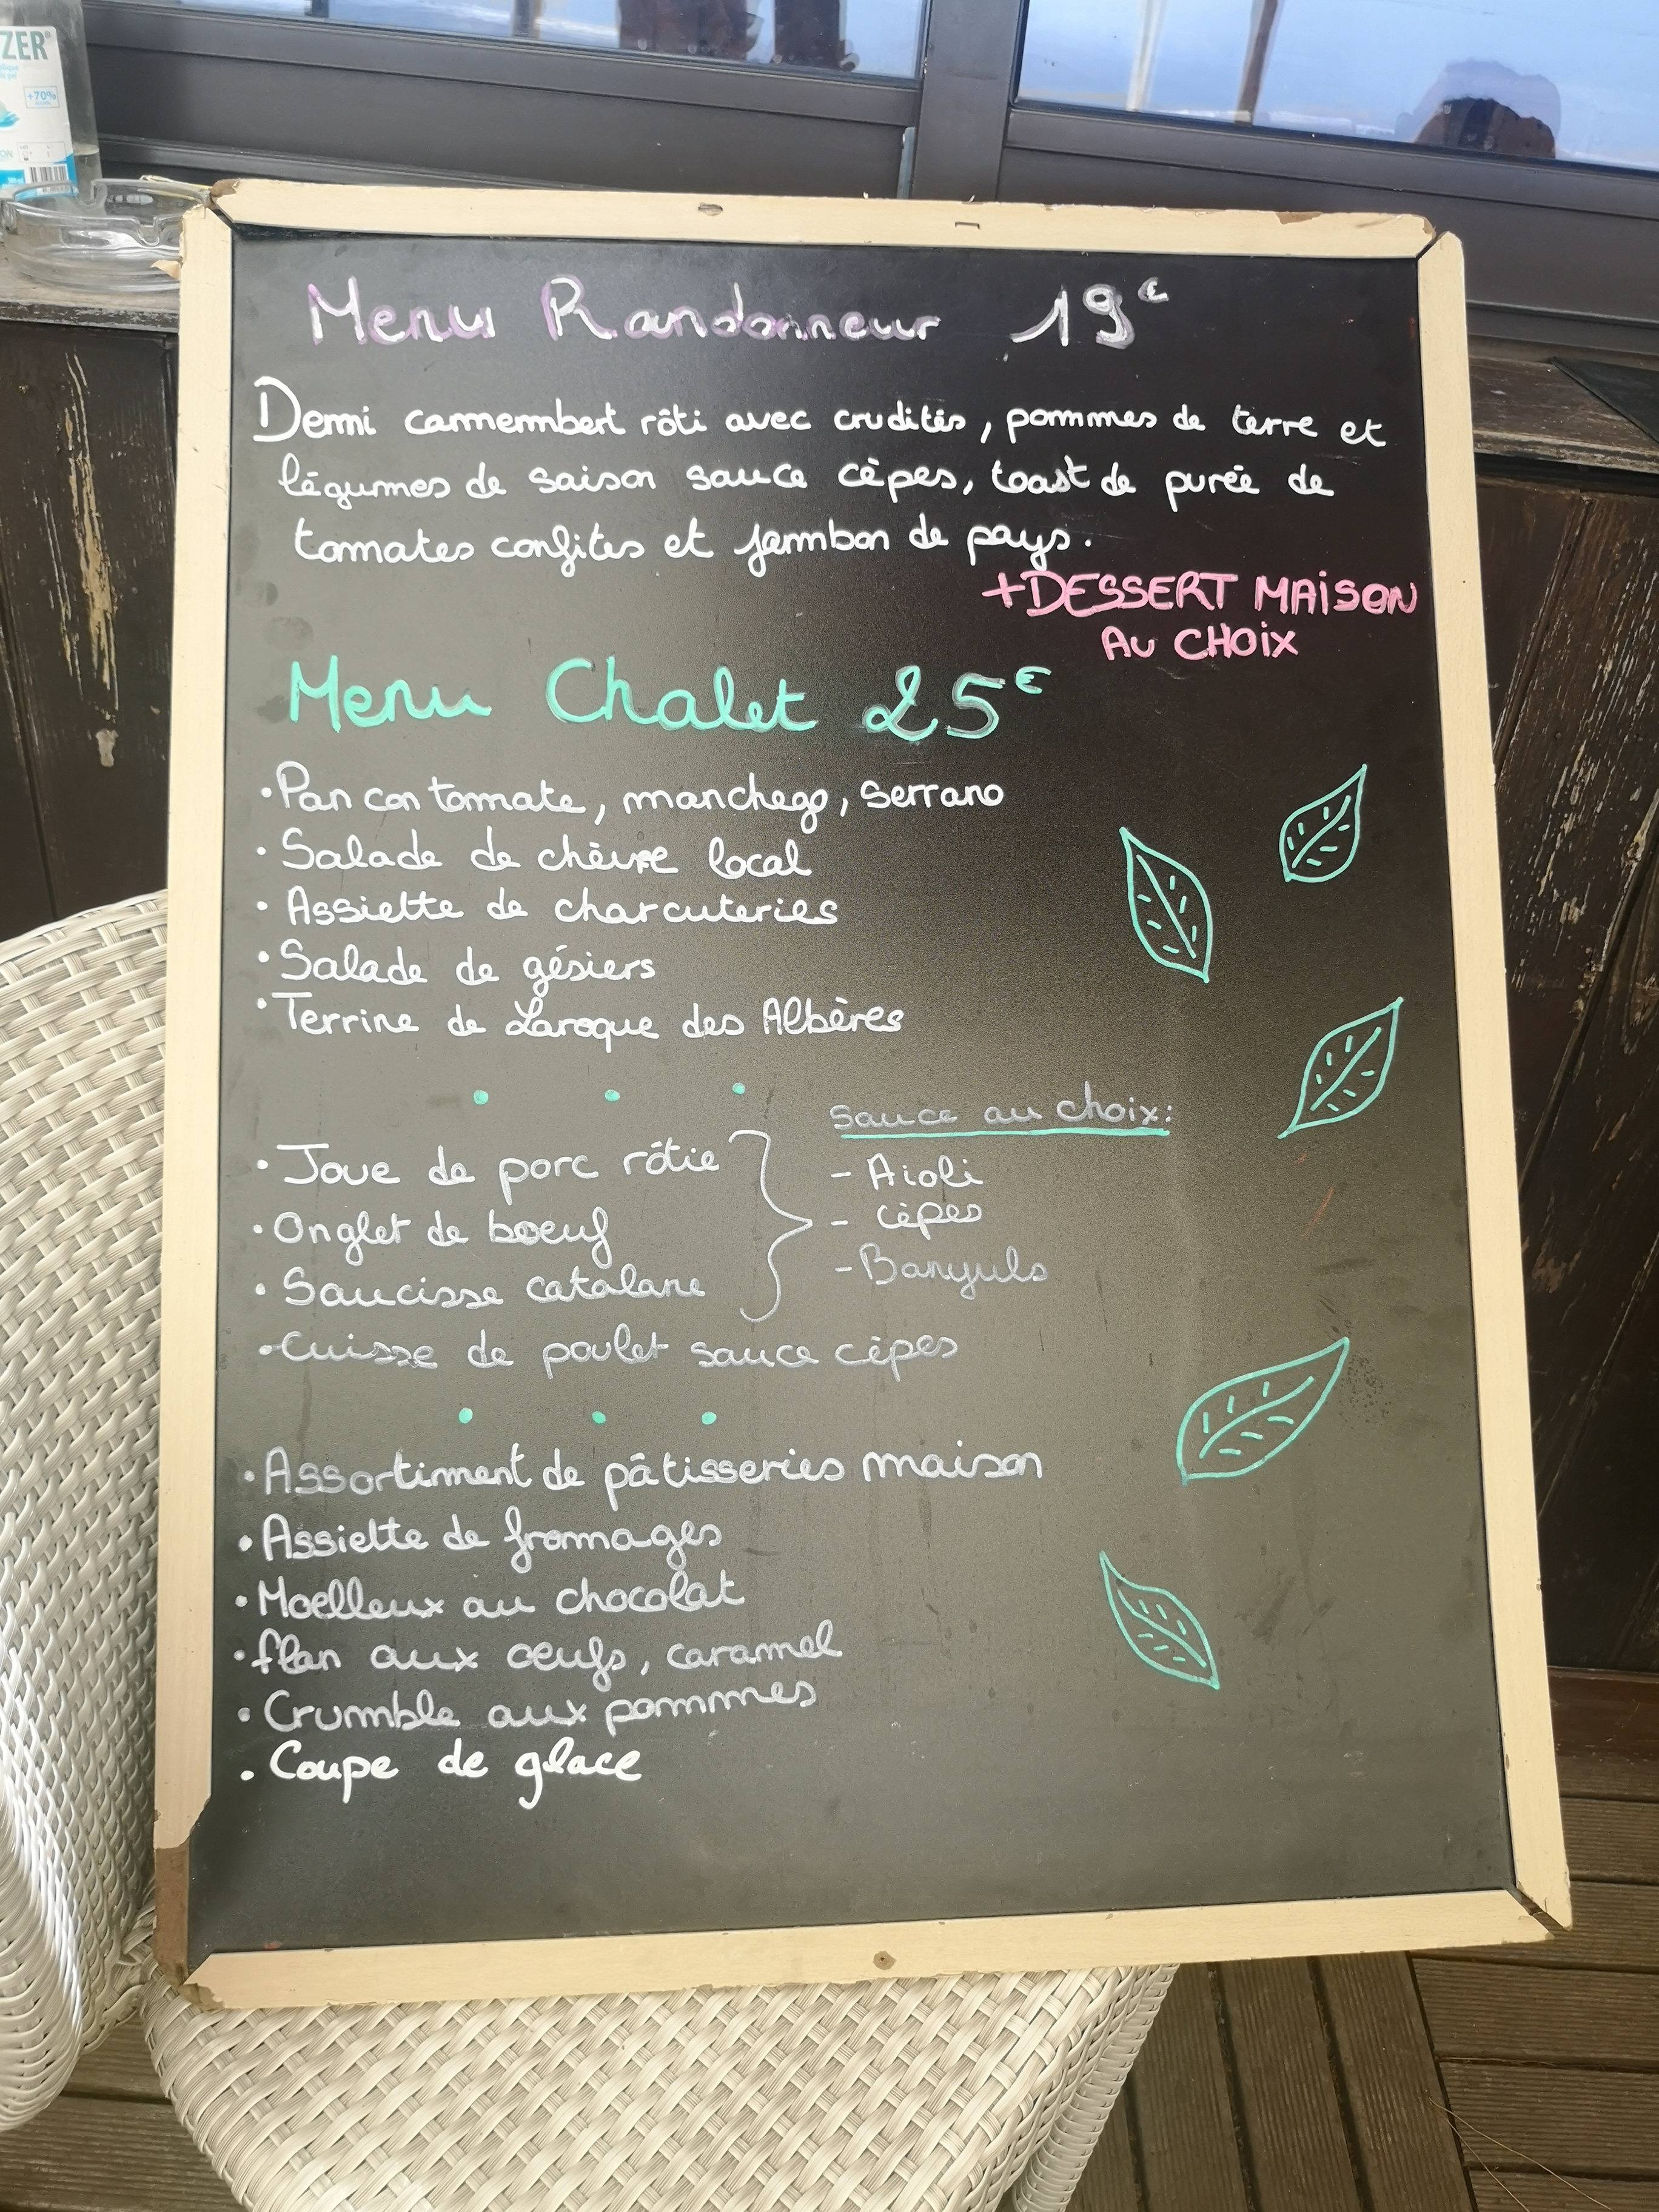 ZER
+70%
Menu Randonneur 19€
Demi camembert rôti avec crudités, pommes de terre et
légumes de saison sauce cèpes, toast de purée de
tomates confites et jambon de pays.
+DESSERT MAISON
AU CHOIX
Menu Chalet 25€
• Pan con tomate, manchego, serrano
• Salade de chèvre local
• Assiette de charcuteries
• Salade de gésiers
• Terrine de Laroque des Albères
• • •
sauce au choix:
• Joue de porc rôtie
- Aioli
• Onglet de boeuf
- cèpes
• Saucisse catalane
- Banyuls
• Cuisse de poulet sauce cèpes
• • •
• Assortiment de pâtisseries maison
• Assiette de fromages
• Moelleux au chocolat
• flan aux oeufs, caramel
• Crumble aux pommes
• Coupe de glace